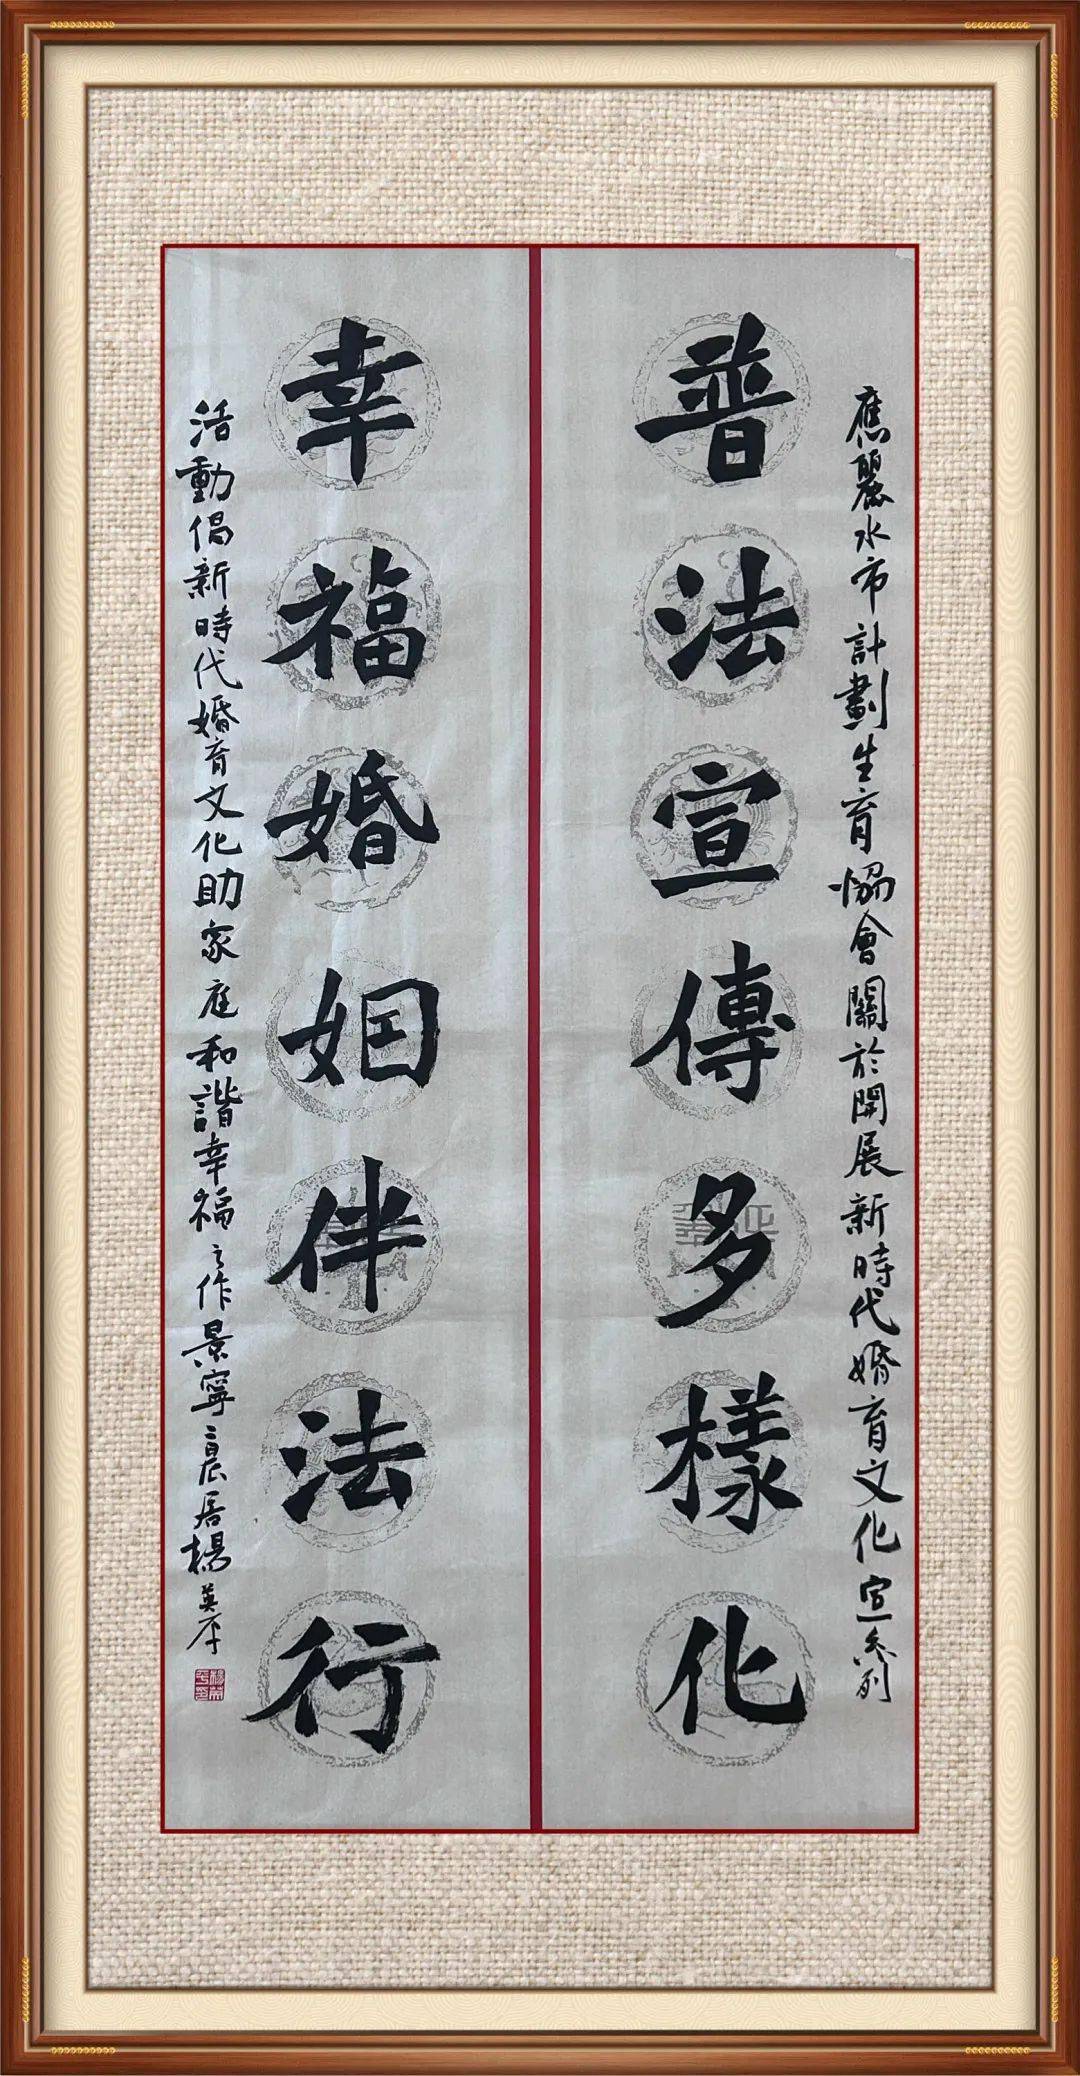 應麗水市計劃生育協會關於開展新時代婚育文化宣系列
普法宣傳多樣化
幸福婚姻伴法行
活動倡新時代婚育文化助家庭和諧幸福之作景寧晨居楊英平